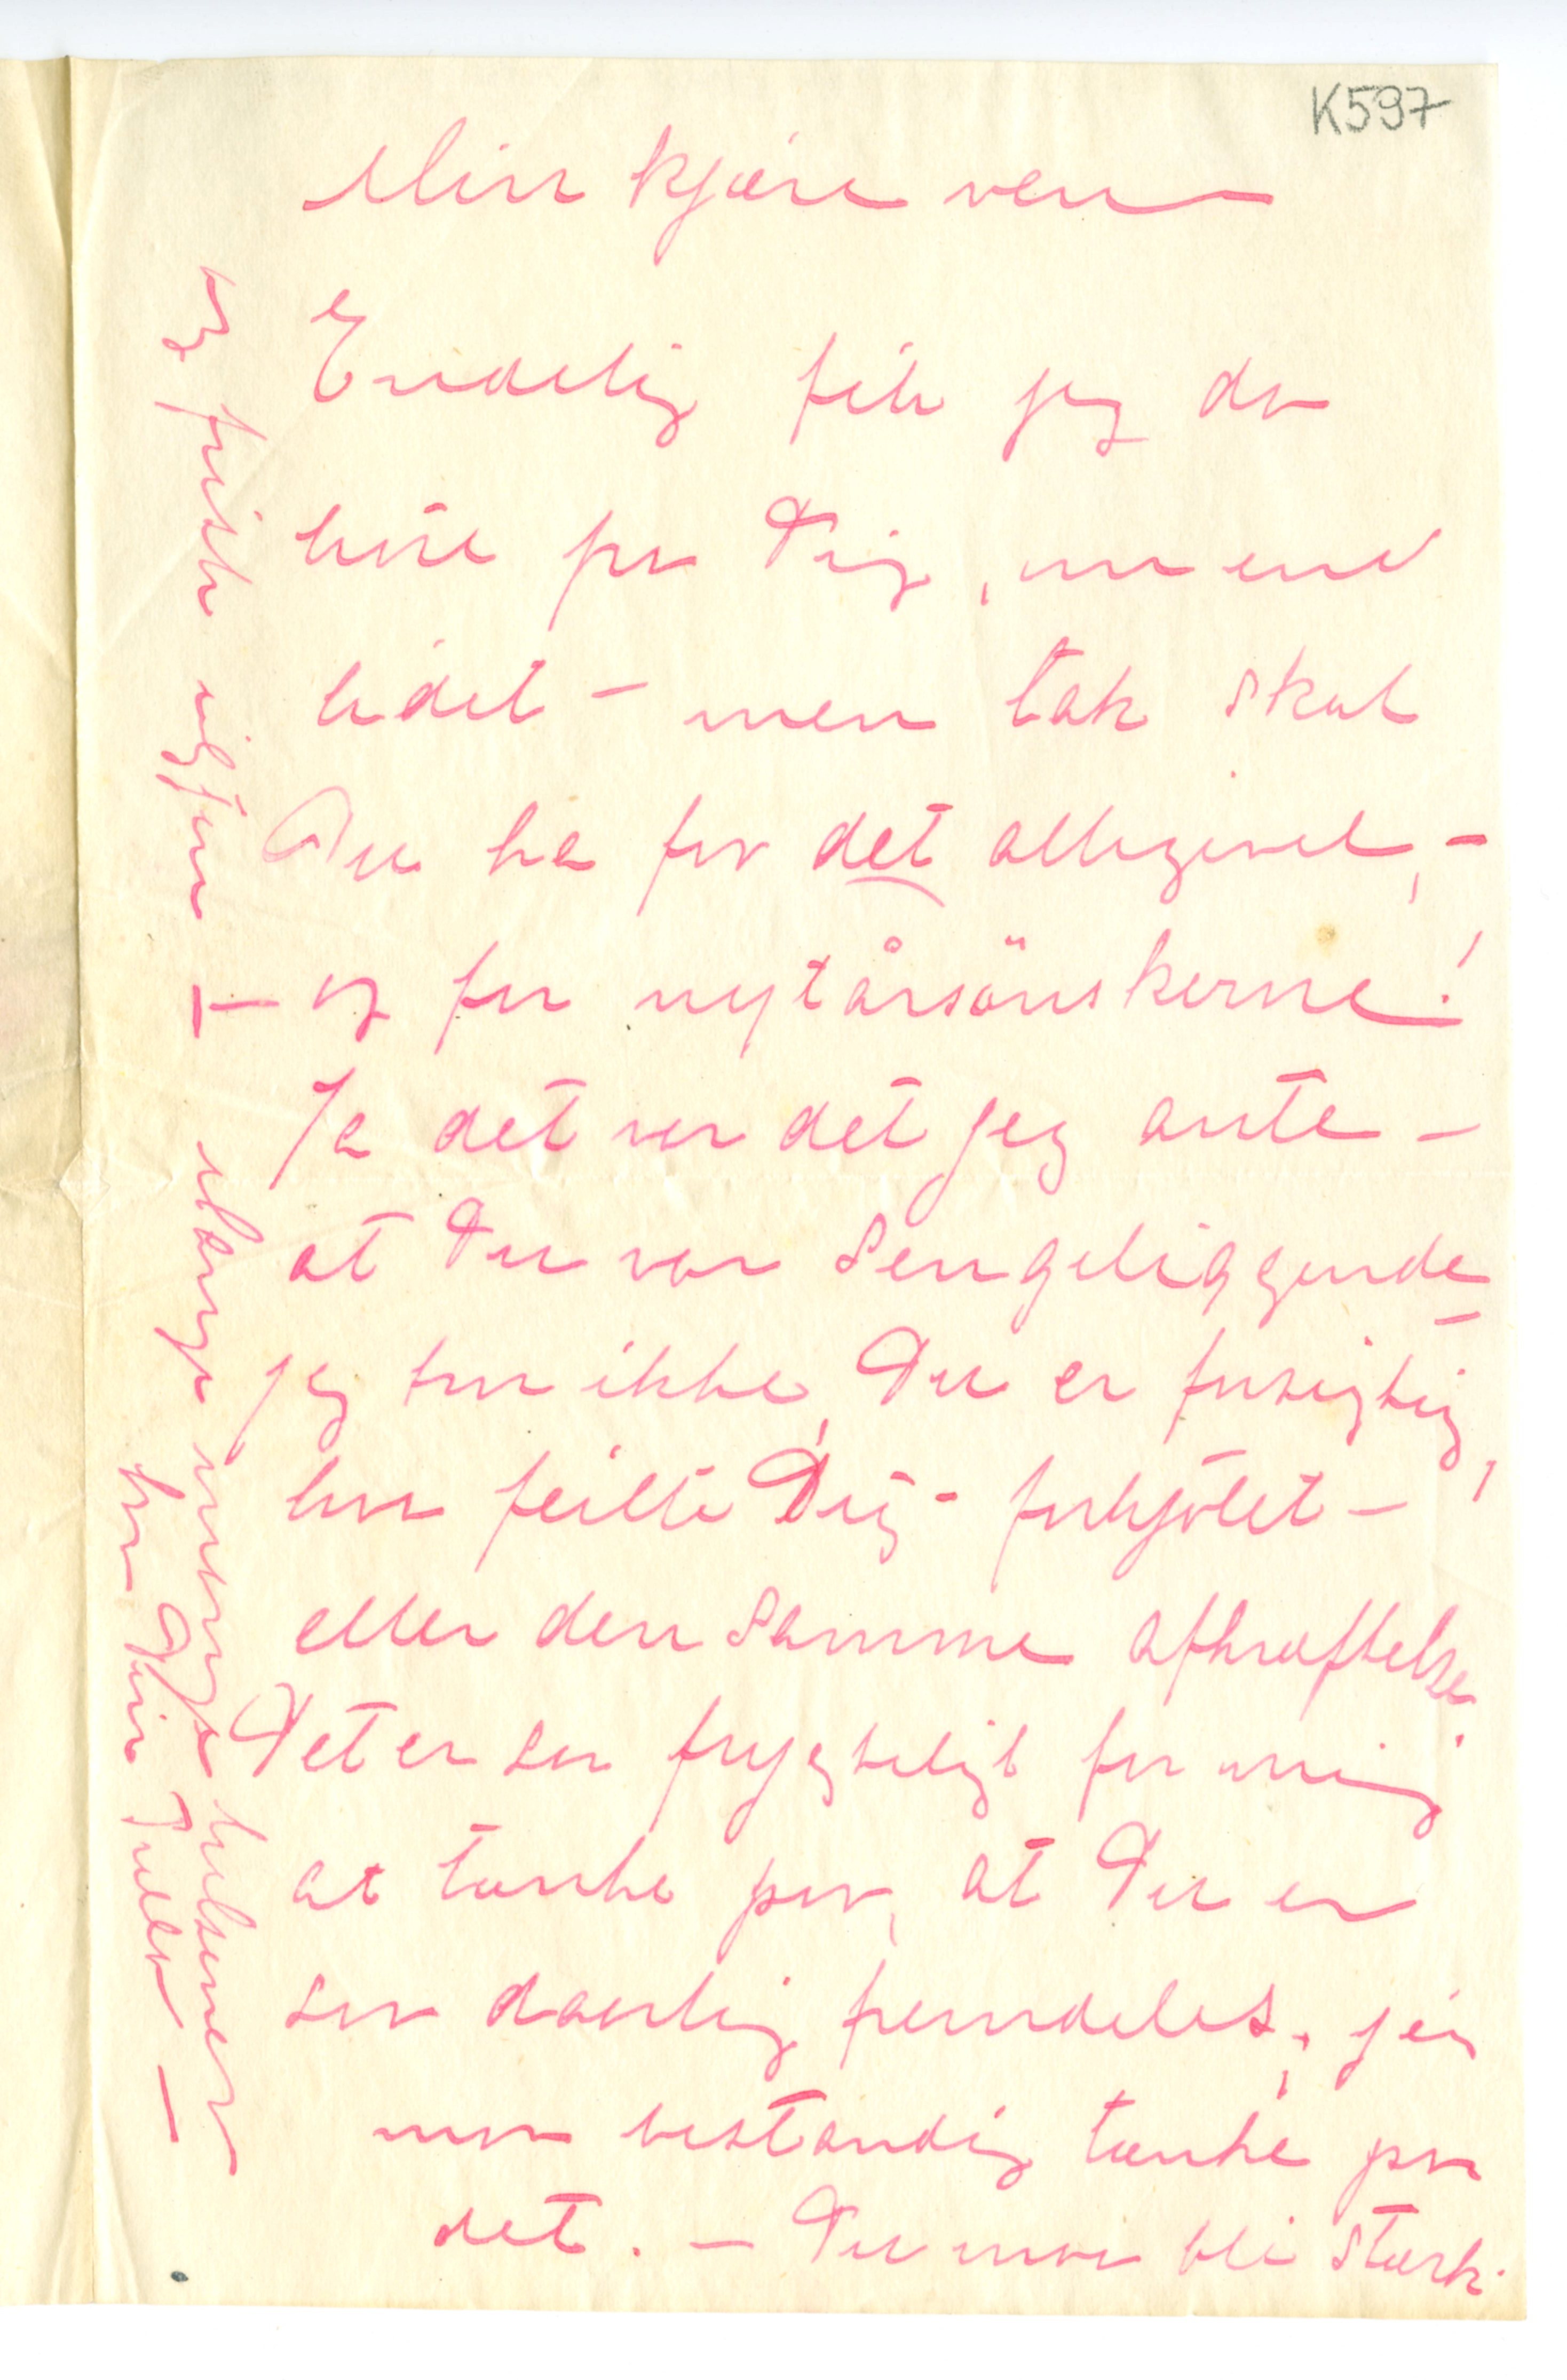 K597
Min kjære ven
Endelig fik jeg da
høre fra Dig, om end
lidet – men tak skal
Du ha for det alligevel, –
og for nytårsönskerne!
Ja det var det jeg ante –
at Du var sengeliggende –
jeg tror ikke, Du er forsigtig,
hva feilte Dig – forkjölet –
eller den samme afkræftelse.
Det er saa frygteligt for mig
at tænke paa, at Du er
saa daarlig fremdeles, jeg
maa bestandig tænke paa
det. – Du maa bli stærk
og frisk igjen – Mange mange hilsener
fra Din Tulla –